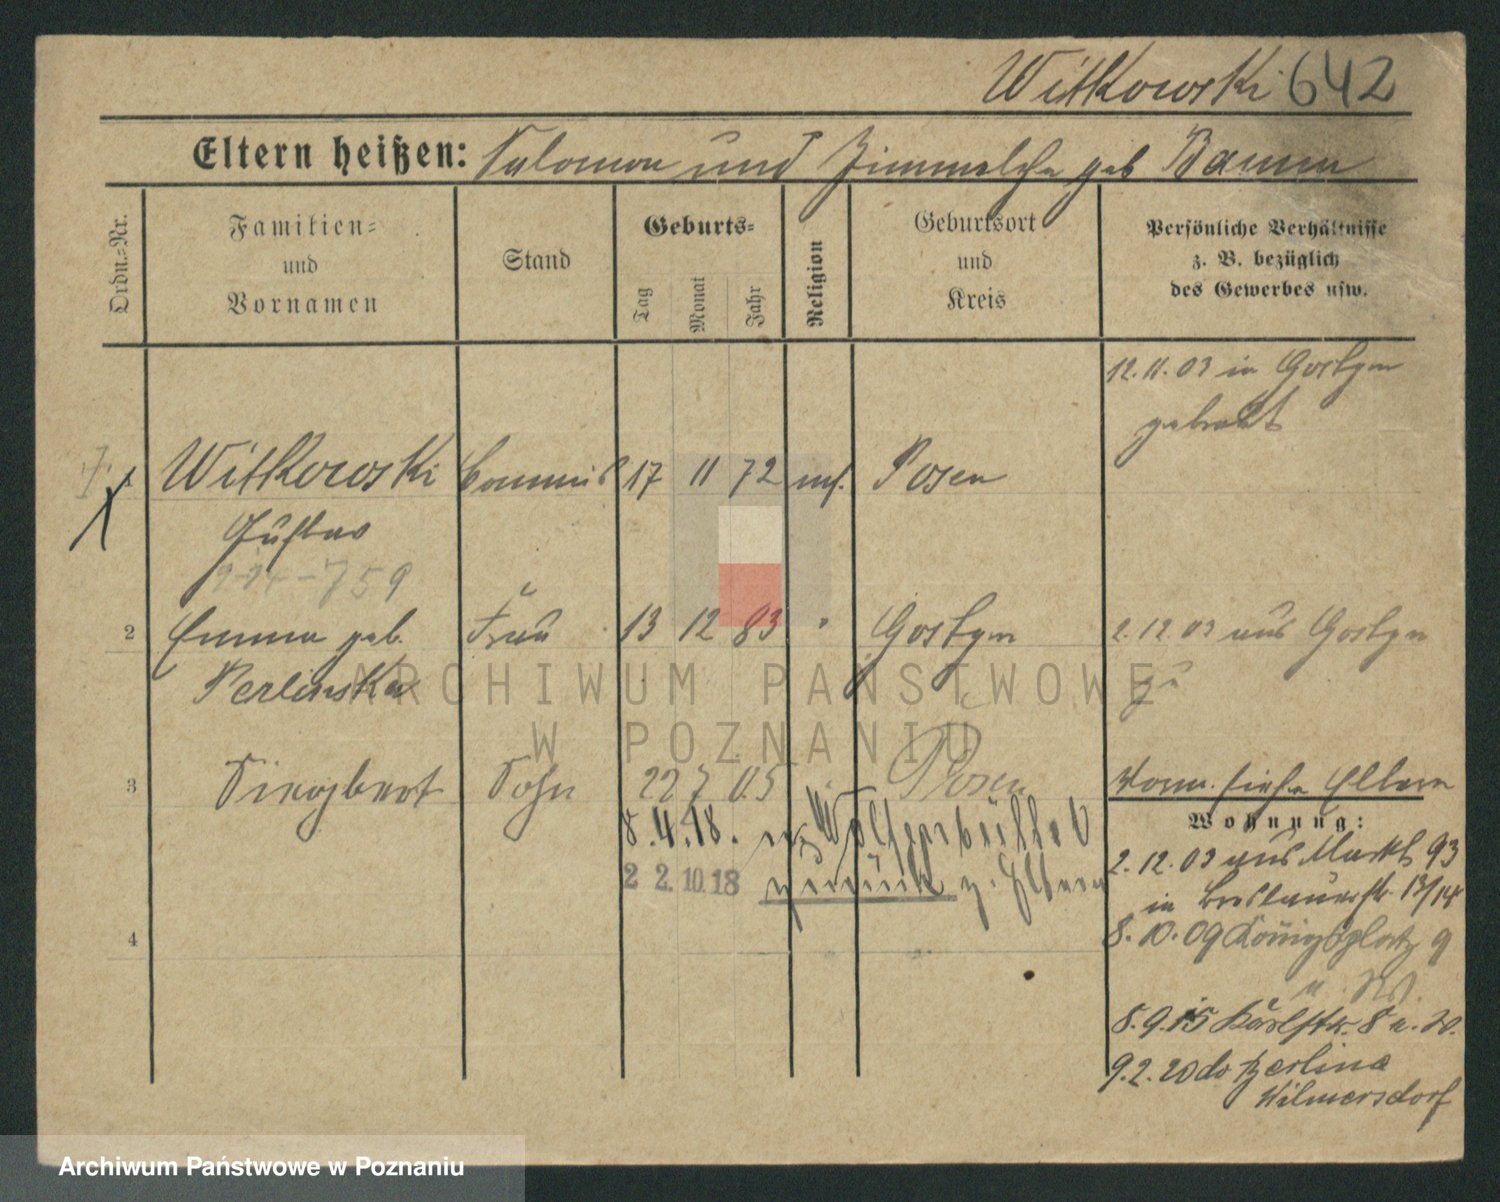 Witkowski 642
Eltern heißen: Salomon und geb Baumm
Ordn.=Nr.
Familien=
und
Vornamen
Stand
Geburts=
Tag
Monat
Jahr
Religion
Geburtsort
und
Kreis
Persönliche Verhältnisse
z. B. bezüglich
des Gewerbes usw.
12.11.03 in Gostyn
getraut
1 Witkowski Commis 17 11 72 mos. Posen
Gustav
759
2 Emma geb. Frau 13 12 83 " Gostyn 2.12.03 aus Gostyn
Perlinska zu
ARCHIWUM PAŃSTWOWE
W POZNANIU
3 Siegbert Sohn 22 7 05 Posen siehe Eltern
8.4.18. n. Wolfenbüttel
22.10.18 zurück z. Eltern
Wohnung:
2.12.03 aus Markt 93
in Breslauerstr. 13/14
8.10.09 Königsplatz 9
4
8.9.15 Karlstr. 8 n. W.
9.2.20 do Berlin
Wilmersdorf
Archiwum Państwowe w Poznaniu